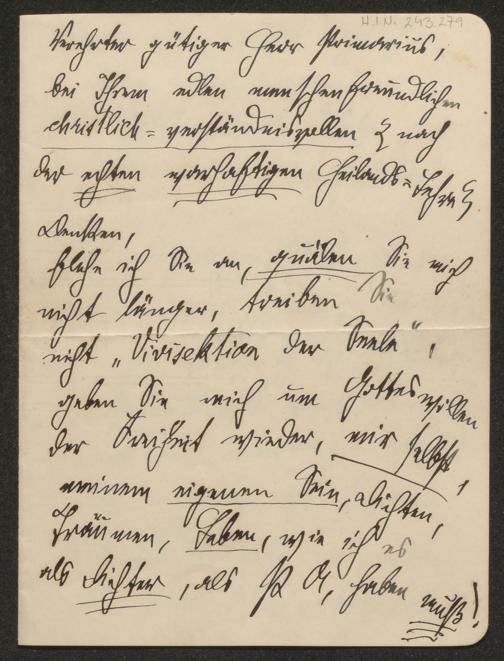 H.I.N. 243.279
Verehrter gütiger Herr Primarius,
bei Ihrem edlen menschenfreundlichen
christlich=verständnisvollen { nach
der echten warhaftigen Heilands=Lehre {
Denken,
flehe ich Sie an, quälen Sie mich
nicht länger, treiben Sie
nicht „Vivisektion der Seele",
geben Sie mich um Gottes willen
der Freiheit wieder, mir selbst,
meinem eigenen Sein, Dichten,
Träumen, Leben, wie ich es
als Dichter, als P A, haben
muß!